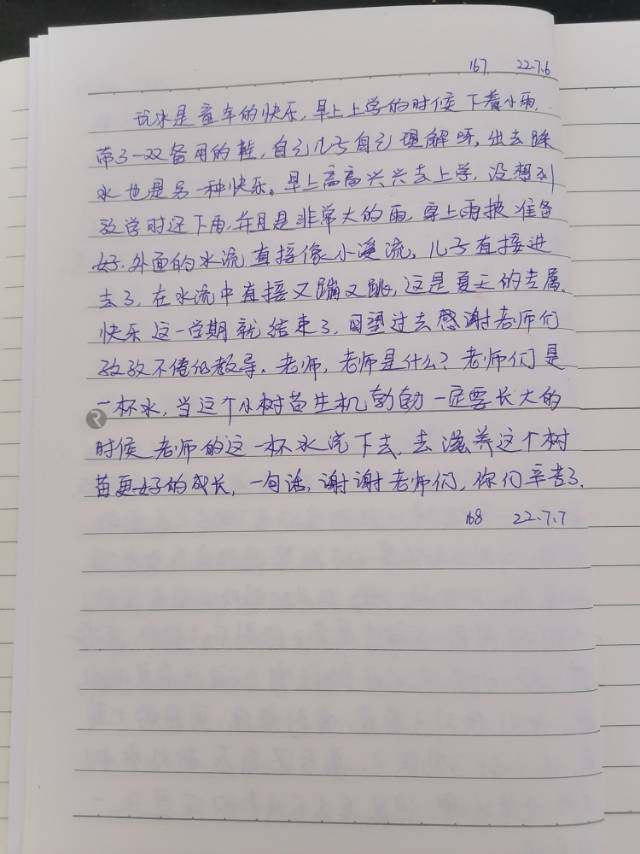 167 22.7.6
玩水是童年的快乐,早上上学的时候下着小雨,
带了一双备用的鞋,自己儿子自己理解呀,出去踩
水也是另一种快乐。早上高高兴兴去上学,没想到
放学时还下雨,并且是非常大的雨,穿上雨披准备
好.外面的水流直接像小溪流,儿子直接进
去了,在水流中直接又蹦又跳,这是夏天的专属
快乐这一学期就结束了,回望过去感谢老师们
孜孜不倦的教导.老师,老师是什么?老师们是
一杯水,当这个小树苗生机勃勃一定要长大的
时候老师的这一杯水浇下去,去滋养这个树
苗更好的成长,一句话,谢谢老师们,你们辛苦了.
168 22.7.7